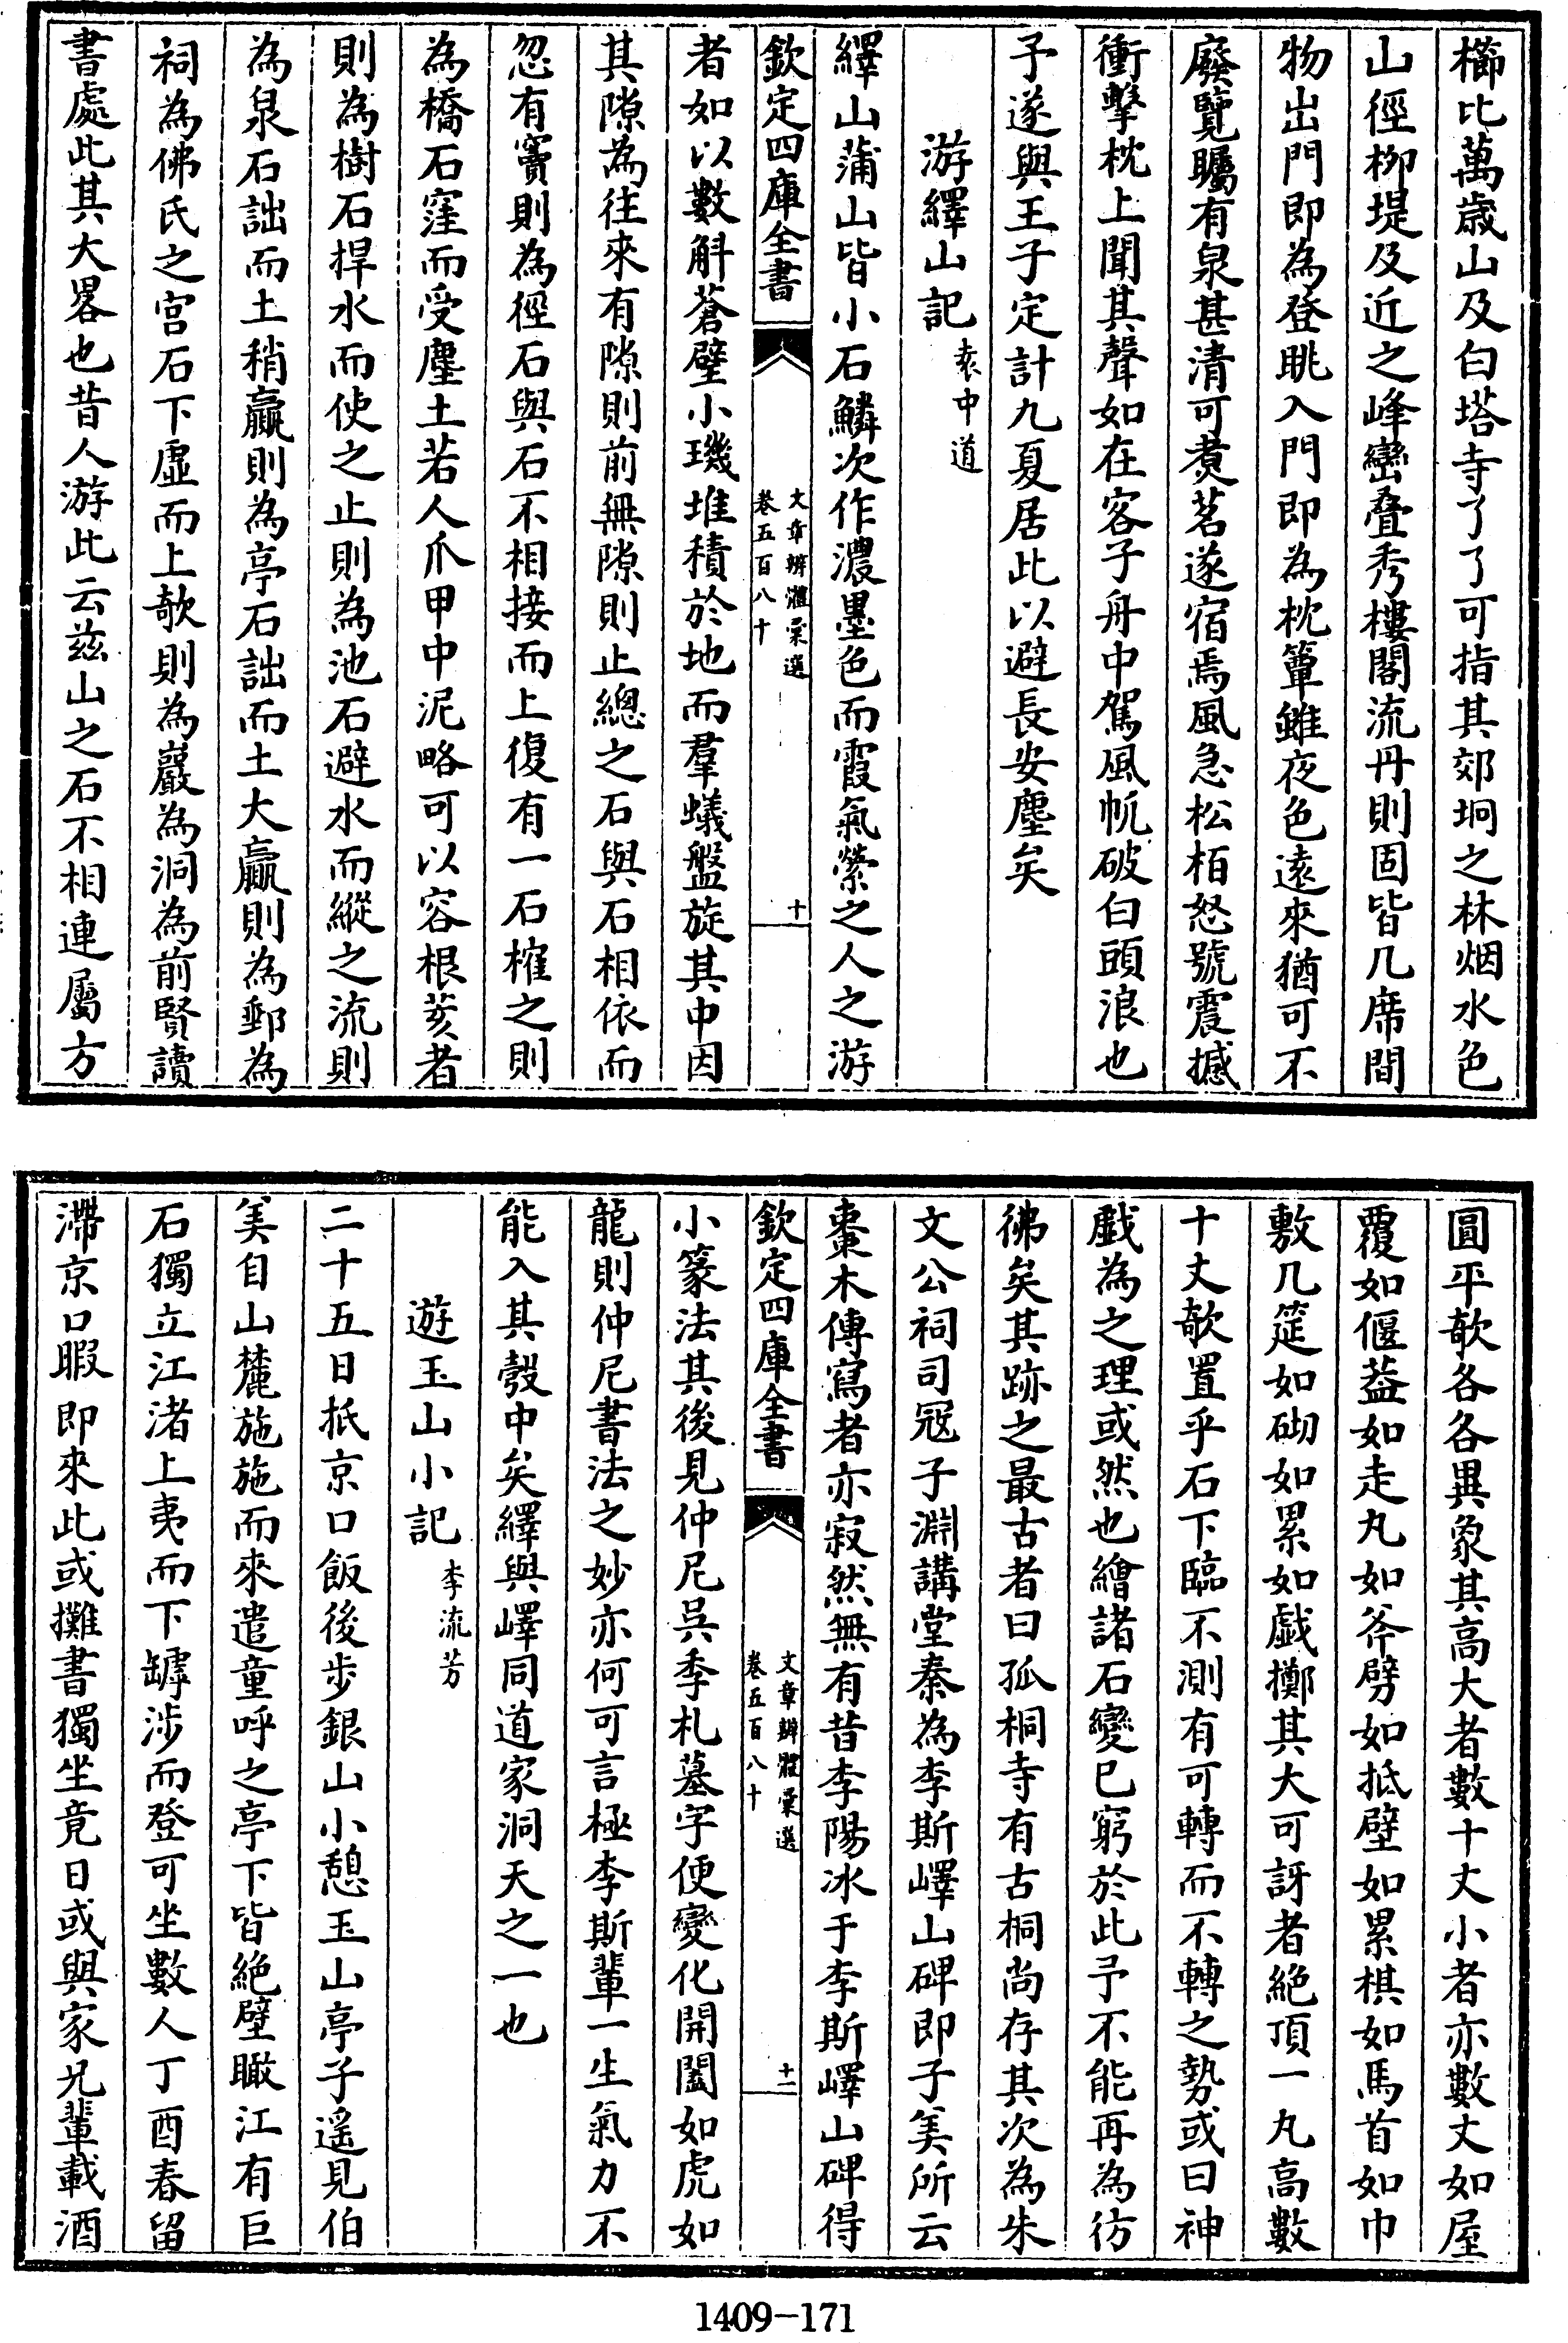 櫛比萬歲山及白塔寺了了可指其郊坰之林烟水色
山徑柳堤及近之峰巒疊秀樓閣流丹則固皆几席間
物出門即為登眺入門即為枕簟雖夜色遠來猶可不
廢覽矚有泉甚清可煑茗遂宿焉風急松栢怒號震撼
衝擊枕上聞其聲如在客子舟中駕風帆破白頭浪也
子遂與王子定計九夏居此以避長安塵矣
游繹山記 袁中道
繹山蒲山皆小石鱗次作濃墨色而霞氣縈之人之游
欽定四庫全書
文章辨體彙選
卷五百八十
十
者如以數斛蒼壁小璣堆積於地而羣蟻盤旋其中因
其隙為往來有隙則前無隙則止總之石與石相依而
忽有竇則為徑石與石不相接而上復有一石榷之則
為橋石窪而受塵土若人爪甲中泥略可以容根荄者
則為樹石捍水而使之止則為池石避水而縱之流則
為泉石詘而土稍贏則為亭石詘而土大贏則為郵為
祠為佛氏之宮石下虛而上欹則為巖為洞為前賢讀
書處此其大畧也昔人游此云兹山之石不相連屬方
圓平欹各各異象其高大者數十丈小者亦數丈如屋
覆如偃葢如走丸如斧劈如抵壁如累棋如馬首如巾
敷几筵如砌如累如戲擲其大可訝者絶頂一丸高數
十丈欹置乎石下臨不測有可轉而不轉之勢或曰神
戲為之理或然也繪諸石變已窮於此予不能再為彷
彿矣其跡之最古者曰孤桐寺有古桐尚存其次為朱
文公祠司寇子淵講堂秦為李斯嶧山碑即子美所云
棗木傳寫者亦寂然無有昔李陽冰于李斯嶧山碑得
欽定四庫全書
文章辨體彙選
卷五百八十
十一
小篆法其後見仲尼吳季札墓字便變化開闔如虎如
龍則仲尼書法之妙亦何可言極李斯輩一生氣力不
能入其彀中矣繹與嶧同道家洞天之一也
遊玉山小記 李流芳
二十五日抵京口飯後步銀山小憩玉山亭子遥見伯
美自山麓施施而來遣童呼之亭下皆絶壁瞰江有巨
石獨立江渚上夷而下罅涉而登可坐數人丁酉春留
滯京口暇即來此或攤書獨坐竟日或與家兄輩載酒
1409-171